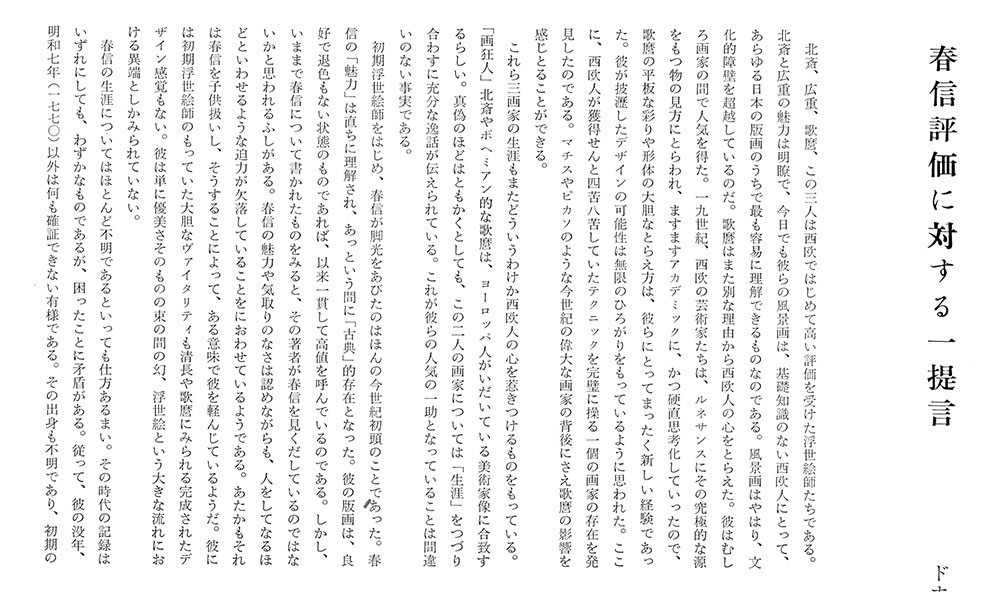 春信評価に対する一提言
ド
北斎、広重、歌麿、この三人は西欧ではじめて高い評価を受けた浮世絵師たちである。
北斎と広重の魅力は明瞭で、今日でも彼らの風景画は、基礎知識のない西欧人にとって、
あらゆる日本の版画のうちで最も容易に理解できるものなのである。風景画はやはり、文
化的障壁を超越しているのだ。歌麿はまた別な理由から西欧人の心をとらえた。彼はむし
ろ画家の間で人気を得た。一九世紀、西欧の芸術家たちは、ルネサンスにその究極的な源
をもつ物の見方にとらわれ、ますますアカデミックに、かつ硬直思考化していったので、
歌麿の平板な彩りや形体の大胆なとらえ方は、彼らにとってまったく新しい経験であっ
た。彼が披瀝したデザインの可能性は無限のひろがりをもっているように思われた。ここ
に、西欧人が獲得せんと四苦八苦していたテクニックを完璧に操る一個の画家の存在を発
見したのである。マチスやピカソのような今世紀の偉大な画家の背後にさえ歌麿の影響を
感じとることができる。
これら三画家の生涯もまたどういうわけか西欧人の心を惹きつけるものをもっている。
「画狂人」北斎やボヘミアン的な歌麿は、ヨーロッパ人がいだいている美術家像に合致す
るらしい。真偽のほどはともかくとしても、この二人の画家については「生涯」をつづり
合わすに充分な逸話が伝えられている。これが彼らの人気の一助となっていることは間違
いのない事実である。
初期浮世絵師をはじめ、春信が脚光をあびたのはほんの今世紀初頭のことであった。春
信の「魅力」は直ちに理解され、あっという間に「古典」的存在となった。彼の版画は、良
好で退色もない状態のものであれば、以来一貫して高値を呼んでいるのである。しかし、
いままで春信について書かれたものをみると、その著者が春信を見くだしているのではな
いかと思われるふしがある。春信の魅力や気取りのなさは認めながらも、人をしてなるほ
どといわせるような迫力が欠落していることをにおわせているようである。あたかもそれ
は春信を子供扱いし、そうすることによって、ある意味で彼を軽んじているようだ。彼に
は初期浮世絵師のもっていた大胆なヴァイタリティも清長や歌麿にみられる完成されたデ
ザイン感覚もない。彼は単に優美さそのものの束の間の幻、浮世絵という大きな流れにお
ける異端としかみられていない。
春信の生涯についてはほとんど不明であるといっても仕方あるまい。その時代の記録は
いずれにしても、わずかなものであるが、困ったことに矛盾がある。従って、彼の没年、
明和七年(一七七〇)以外は何も確証できない有様である。その出身も不明であり、初期の